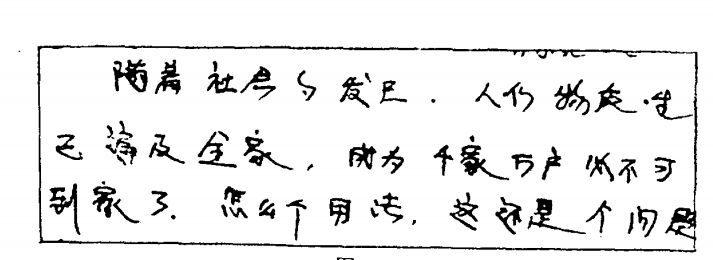 随着社会的发展．人们物质生
已遍及全家，成为千家万户必不可
到家了．怎么个用法，这还是个问题